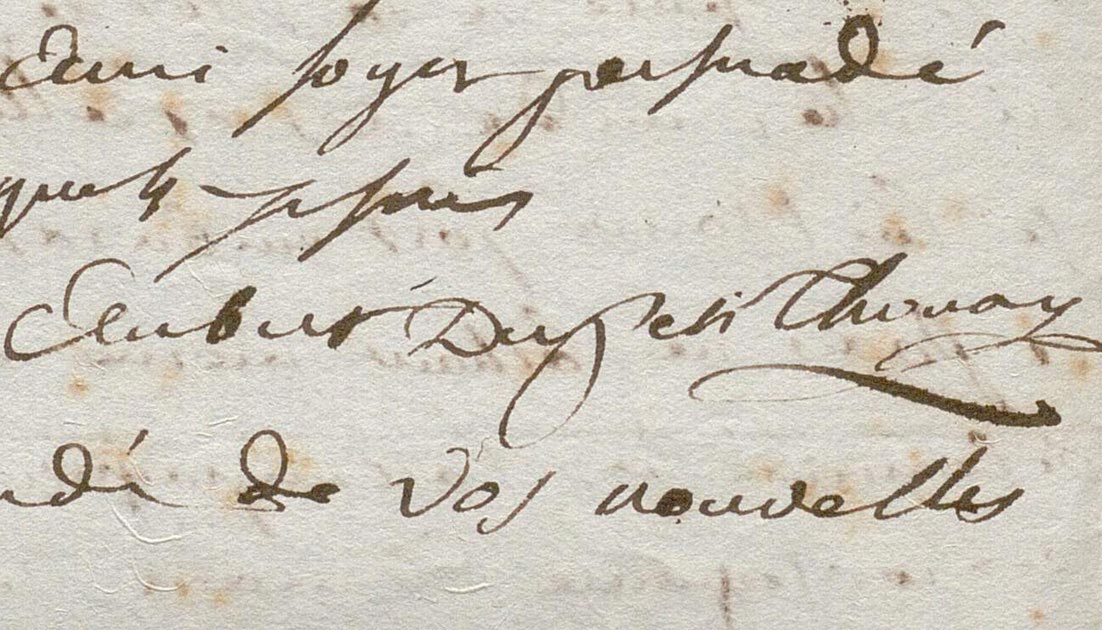 ami soyez persuadé
quels je suis
Aubert Du petit Thouars
ndé de vos nouvelles